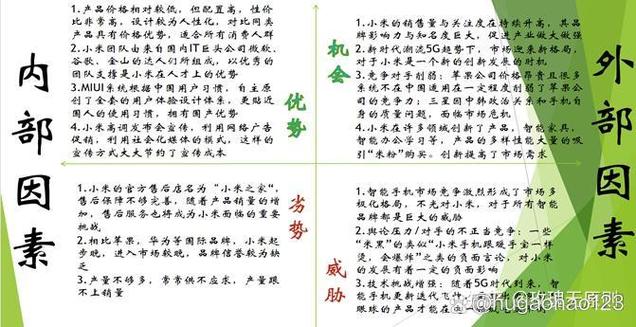 内部因素
1.产品价格相对较低，但配置高，性价
比非常高，设计较为人性化，对比同类
产品具有价格优势，适合所有消费人群
2.小米团队由来自国内IT巨头公司微软、
谷歌、金山的达人们所组成，以优秀的
团队支撑是小米在人才上的优势
3.MIUI系统根据中国用户习惯，自主原
创了全套的用户体验设计体系，更贴近
国人的使用习惯，拥有国产优势
4.小米高调发布会宣传，利用网络广告
促销，利用社会化媒体的模式，这样的
宣传方式大大节约了宣传成本
优势
机会
1.小米的销售量与关注度在持续升高，其品
牌影响力与知名度巨大，促进产业做大做强
2.新时代潮流5G趋势下，市场迎来新格局，
对于小米是一个新的创新发展的时机
3.竞争对手削弱：苹果公司价格昂贵且很多
系统不在中国适用在一定程度削弱了苹果公
司的竞争力；三星因中韩政治关系和手机自
身的质量问题，面临市场危机
4.小米在许多领域创新了产品，智能家具，
智能办公学习等，产品的多样性能大量的吸
引“米粉”购买。创新提高了市场需求
外部因素
1.小米的官方售后店名为“小米之家“，
售后保障不够完善，随着产品销量的增
加，售后服务也将成为小米面临的重要
挑战
2.相比苹果，华为等国际品牌，小米起
步晚，进入市场较晚，品牌信誉较为缺
乏
3.产量不够多，常常供不应求，产量跟
不上销量
劣势
威胁
1.智能手机市场竞争激烈形成了市场多
极化格局，不光对小米，对于所有智能
品牌都是巨大的威胁
2.舆论压力/对手的不正当竞争：一些
“米黑”的类似“小米手机跟暖手宝一样
烫，会爆炸”之类的负面言论，对小米
的发展有着一定的负面影响
3.技术挑战增强：随着5G时代到来，智
能手机更新迭代飞快，
眼球的产品才能在
@hugaohao123